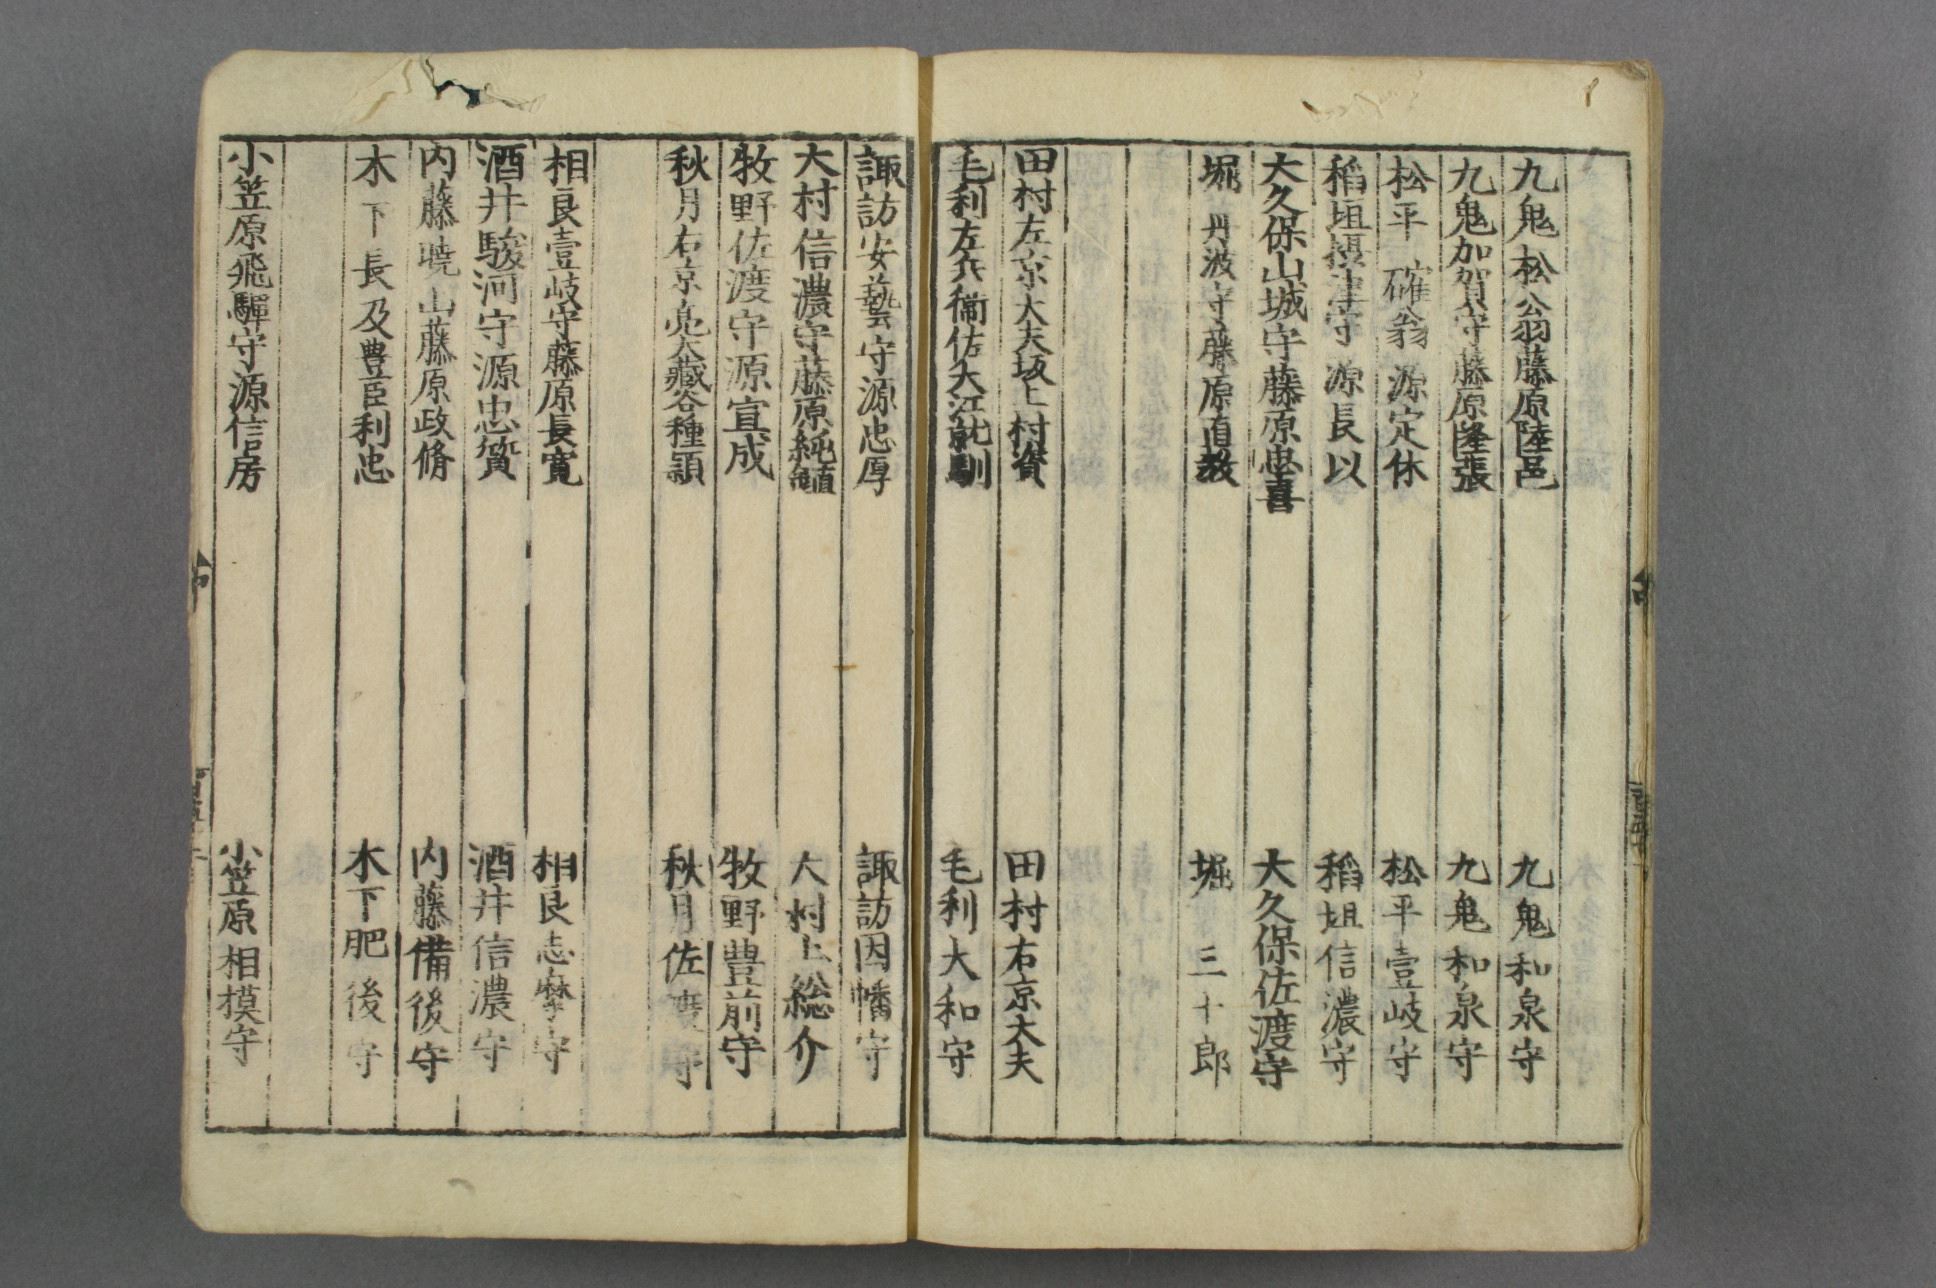 九鬼松翁藤原隆邑　九鬼和泉守
九鬼加賀守藤原隆張　九鬼和泉守
松平確翁源定休　松平壹岐守
稻垣摂津守源長以　稻垣信濃守
大久保山城守藤原忠喜　大久保佐渡守
堀丹波守藤原直教　堀三十郎
田村左京大夫坂上村資　田村右京大夫
毛利左兵衞佐大江就馴　毛利大和守
諏訪安藝守源忠厚　諏訪因幡守
大村信濃守藤原純鎮　大村上総介
牧野佐渡守源宣成　牧野豊前守
秋月右京亮大藏谷種頴　秋月佐渡守
相良壹岐守藤原長寛　相良志摩守
酒井駿河守源忠質　酒井信濃守
内藤暁山藤原政脩　内藤備後守
木下長及豊臣利忠　木下肥後守
小笠原飛騨守源信房　小笠原相模守